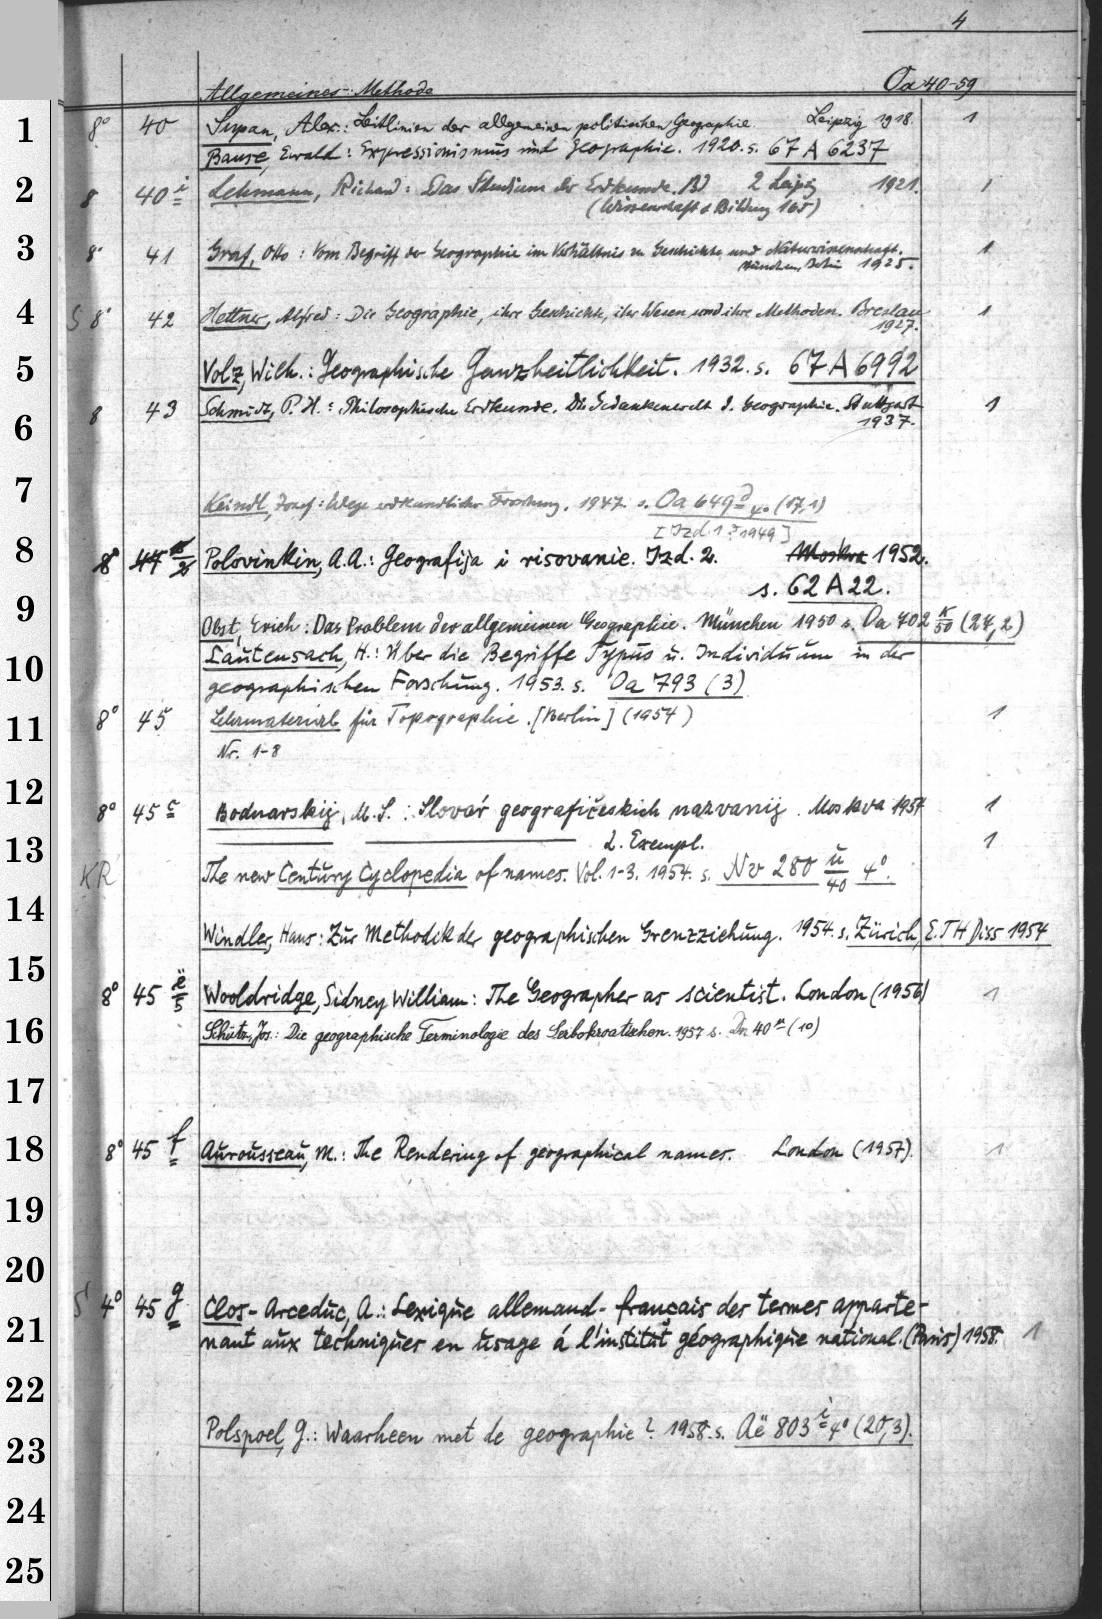 4
Allgemeines- Methode Oa 40-59
1 8° 40 Supan, Alex.: Leitlinien der allgemeinen politischen Geographie. Leipzig 1918. 1
Banse, Ewald: Expressionismus und Geographie. 1920. s. 67 A 6237
2 8 40 i Lehmann, Richard: Das Studium der Erdkunde. Bd 2 Leipzig 1921. 1
(Wissenschaft & Bildung 165)
3 8° 41 Graf, Otto: Vom Begriff der Geographie im Verhältnis zu Geschichte und Naturwissenschaft. 1
München, Berlin 1925.
4 S 8° 42 Hettner, Alfred: Die Geographie, ihre Geschichte, ihr Wesen und ihre Methoden. Breslau 1
1927.
5 Volz, Wilh.: Geographische Ganzheitlichkeit. 1932. s. 67 A 6992
6 8 43 Schmidt, P. H.: Philosophische Erdkunde. Die Gedankenwelt d. Geographie. Stuttgart 1
1937.
7 Keindl, Josef: Wege erdkundlicher Forschung. 1947. s. Oa 649 4° (17,1)
[Izd. 1 ? 1949]
8 8° 44 Polovinkin, A.A.: Geografija i risovanie. Izd. 2. Moskva 1952.
s. 62 A 22.
9 Obst, Erich: Das Problem der allgemeinen Geographie. München 1950 s. Oa 702 K/50 (27,2)
10 Lautensach, H.: Über die Begriffe Typus u. Individuum in der
geographischen Forschung. 1953. s. Oa 793 (3)
11 8° 45 Lehrmaterial für Topographie. [Berlin] (1954) 1
Nr. 1-8
12 8° 45 c Bodnarskij, M. S.: Slovár geografičeskich nazvanij. Moskva 1954 1
13 2. Exempl. 1
KR The new Century Cyclopedia of names. Vol. 1-3. 1954. s. Nv 280 ü/40 4°.
14 Windler, Hans: Zur Methodik der geographischen Grenzziehung. 1954. s. Zürich, E.T.H Diss 1954
15 8° 45 ë/5 Wooldridge, Sidney William: The Geographer as scientist. London (1956) 1
16 Schütz, Jos.: Die geographische Terminologie des Serbokroatischen. 1957 s. 40 (10)
17
18 8° 45 f Aurousseau, M.: The Rendering of geographical names. London (1957). 1
19
20
S 4° 45 g Clos-Arceduc, A.: Lexique allemand-français des termes apparte-
21 nant aux techniques en usage á l'institut géographique national. (Paris) 1958. 1
22
23 Polspoel, G.: Waarheen met de geographie? 1958. s. Aë 803 i 4° (20,3).
24
25